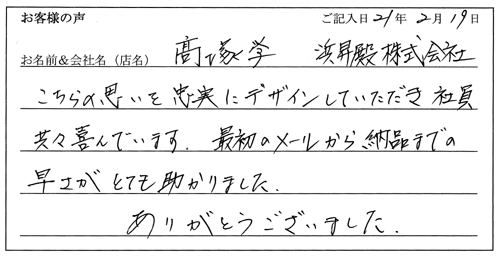 お客様の声 ご記入日 21年 2月 19日
お名前&会社名(店名) 髙塚学 浜昇殿株式会社
こちらの思いを忠実にデザインしていただき 社員
共々喜んでいます. 最初のメールから納品までの
早さが とても助かりました.
ありがとうございました.